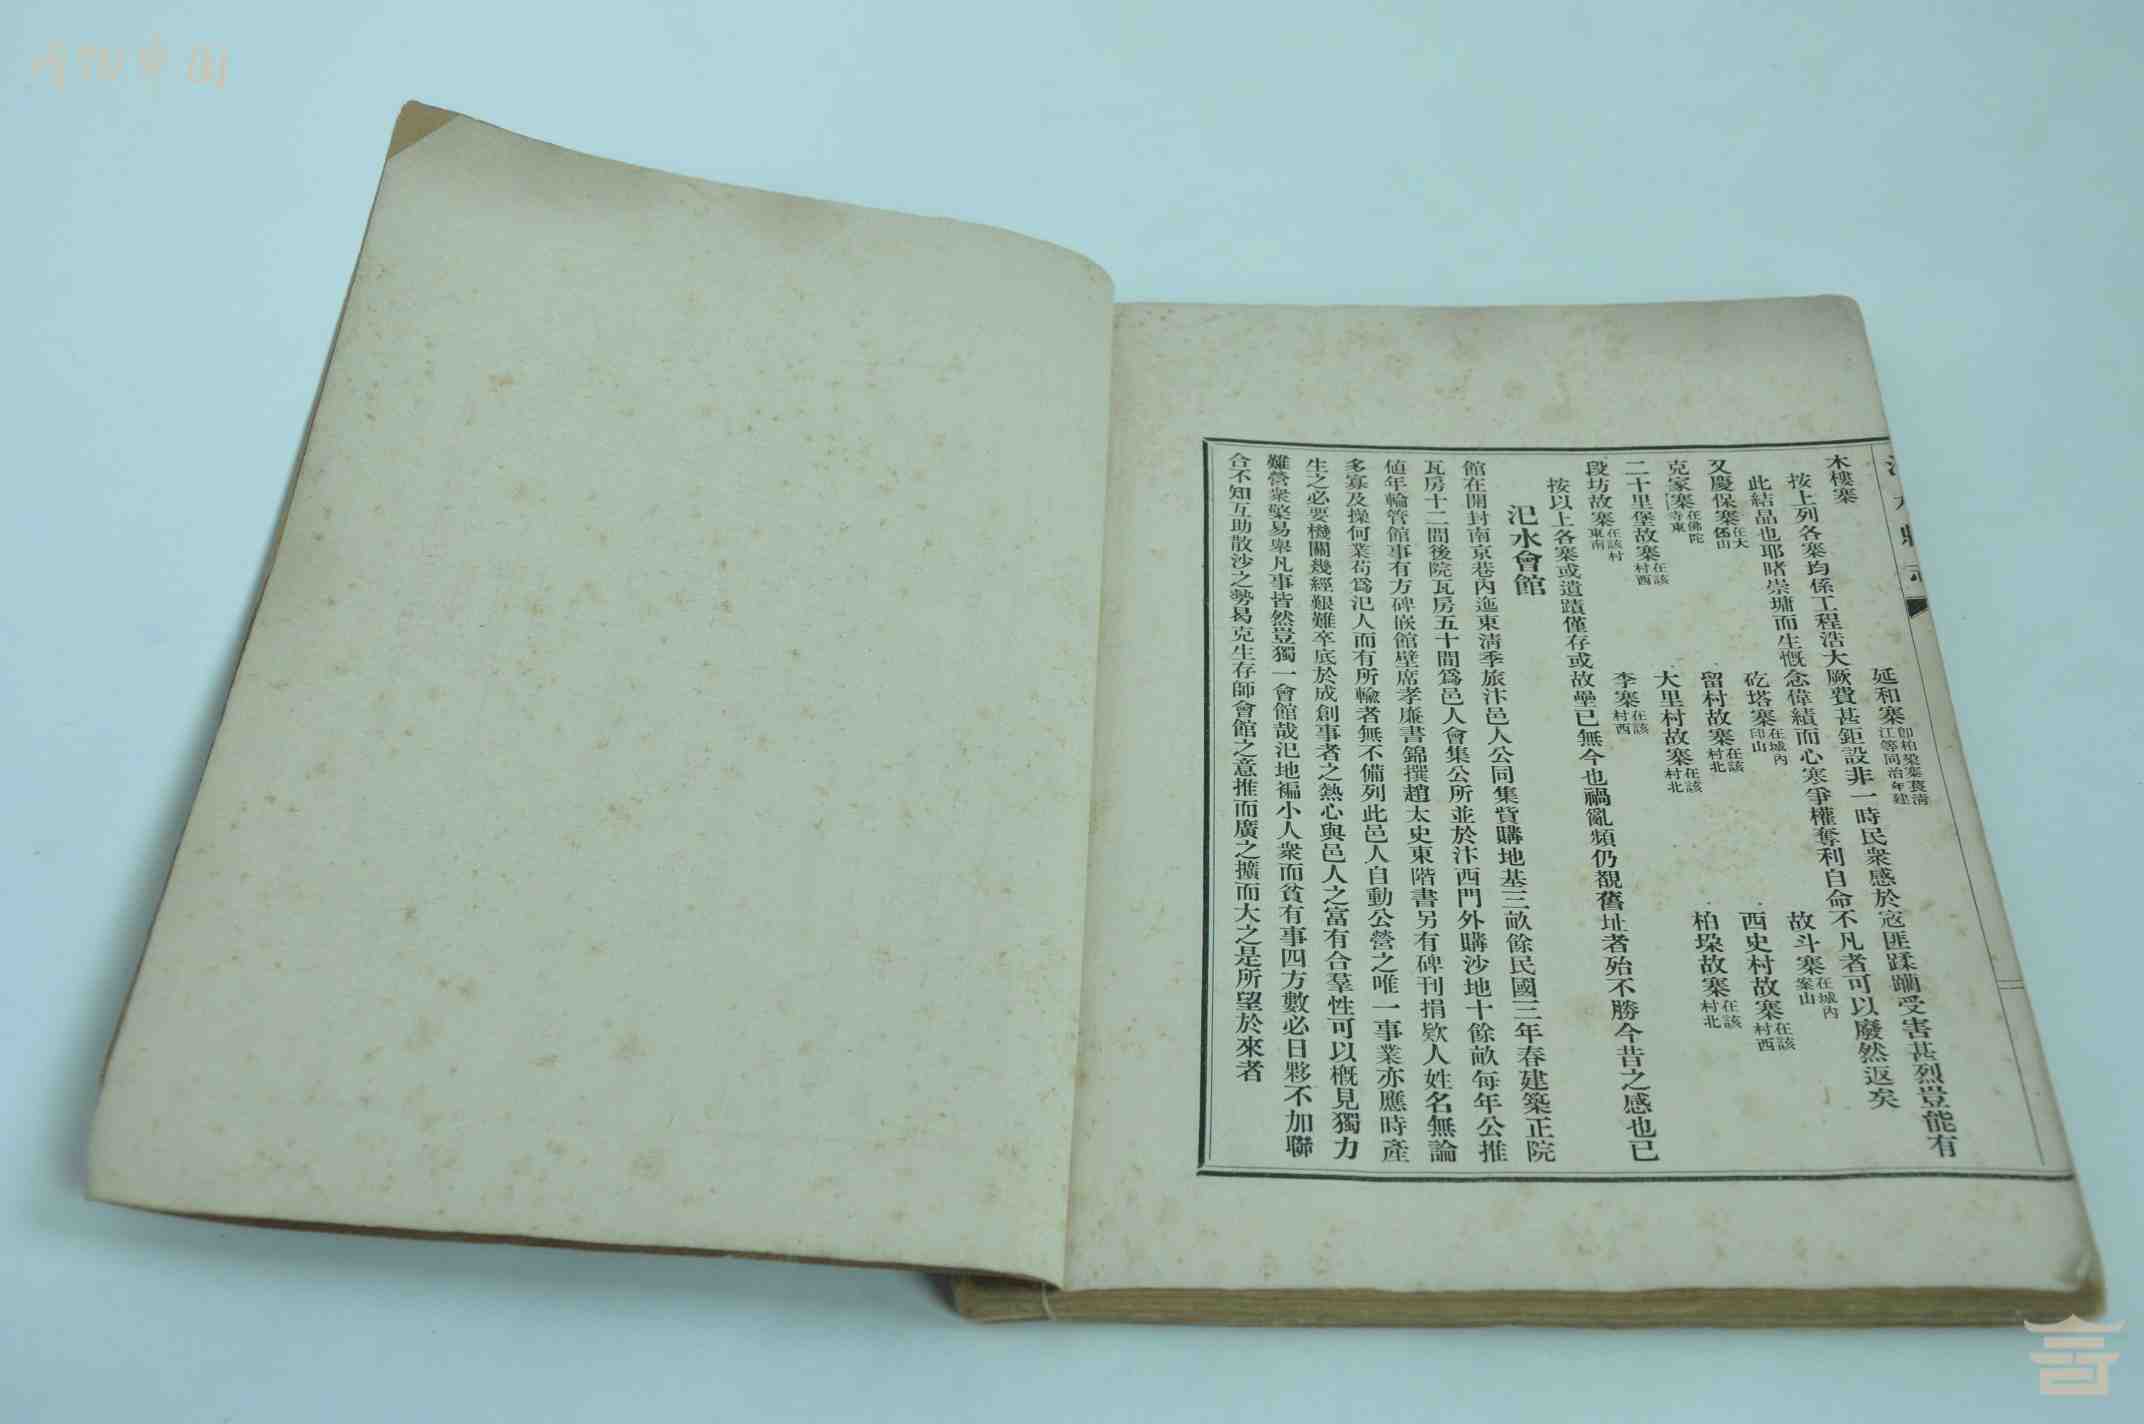 木樓寨 延和寨 卽柏梁寨萇淸江等同治年建
按上列各寨均係工程浩大厥費甚鉅設非一時民衆感於寇匪蹂躪受害甚烈豈能有
此結晶也耶睹崇墉而生慨念偉績而心寒爭權奪利自命不凡者可以廢然返矣
又慶保寨 在大伾山 矻塔寨 在城內印山 故斗寨 在城內案山
克家寨 在佛陀寺東 留村故寨 在該村北 西史村故寨 在該村西
二十里堡故寨 在該村西 大里村故寨 在該村北 柏垜故寨 在該村北
段坊故寨 在該村東南 李寨 在該村西
按以上各寨或遺蹟僅存或故壘已無今也禍亂頻仍覩舊址者殆不勝今昔之感也已
汜水會館
館在開封南京巷內迤東淸季旅汴邑人公同集貲購地基三畝餘民國三年春建築正院
瓦房十二間後院瓦房五十間爲邑人會集公所並於汴西門外購沙地十餘畝每年公推
値年輪管館事有方碑嵌館壁席孝廉書錦撰趙太史東階書另有碑刊捐欵人姓名無論
多寡及操何業苟爲汜人而有所輸者無不備列此邑人自動公營之唯一事業亦應時產
生之必要機關幾經艱難卒底於成創事者之熱心與邑人之富有合羣性可以概見獨力
難營衆擎易舉凡事皆然豈獨一會館哉汜地褊小人衆而貧有事四方數必日夥不加聯
合不知互助散沙之勢曷克生存師會館之意推而廣之擴而大之是所望於來者